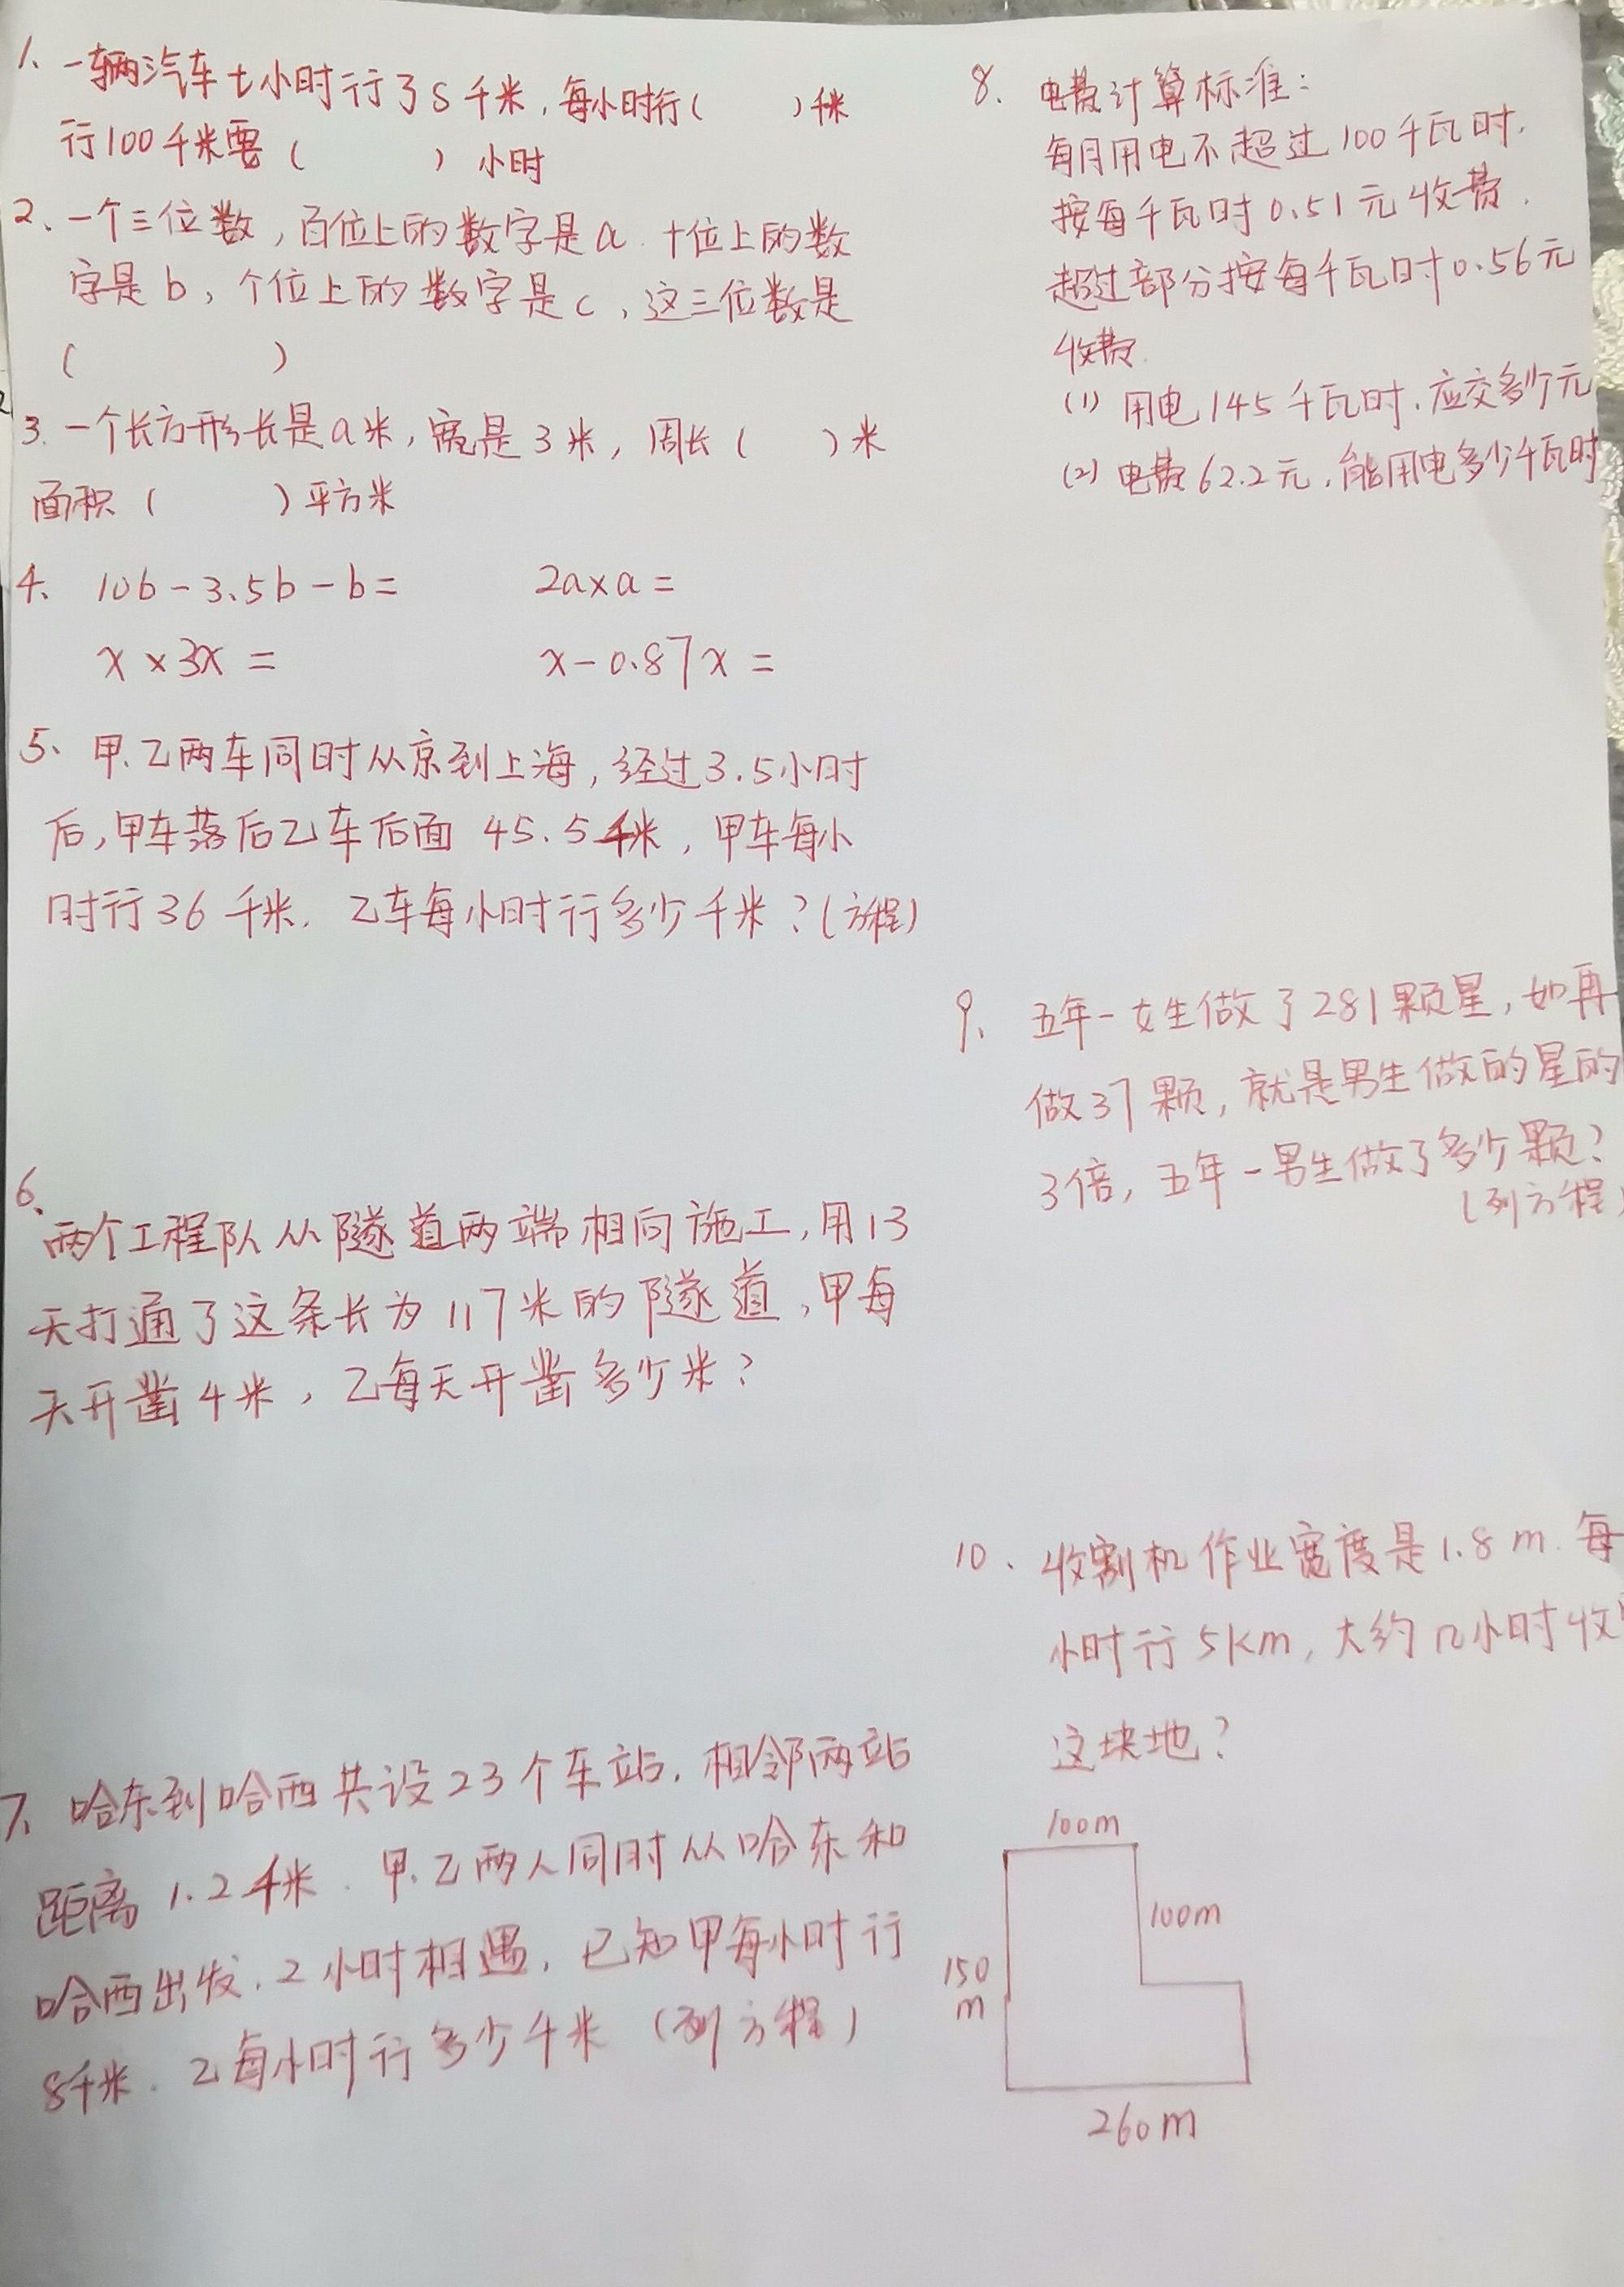 1、一辆汽车t小时行了S千米,每小时行(  )千米
行100千米要(  )小时
2、一个三位数,百位上的数字是a.十位上的数
字是b,个位上的数字是c,这三位数是
(  )
3.一个长方形长是a米,宽是3米,周长(  )米
面积(  )平方米
4、10b-3.5b-b=  2a×a=
x×3x=  x-0.87x=
5、甲、乙两车同时从京到上海,经过3.5小时
后,甲车落后乙车后面45.5千米,甲车每小
时行36千米.乙车每小时行多少千米?(方程)
6、两个工程队从隧道两端相向施工,用13
天打通了这条长为117米的隧道,甲每
天开凿4米,乙每天开凿多少米?
7、哈东到哈西共设23个车站.相邻两站
距离1.2千米.甲、乙两人同时从哈东和
哈西出发.2小时相遇,已知甲每小时行
8千米.乙每小时行多少千米(列方程)
8、电费计算标准:
每月用电不超过100千瓦时.
按每千瓦时0.51元收费.
超过部分按每千瓦时0.56元
收费.
(1)用电145千瓦时.应交多少元
(2)电费62.2元,能用电多少千瓦时
9、五年一女生做了281颗星,如再
做37颗,就是男生做的星的
3倍,五年一男生做了多少颗?
(列方程)
10、收割机作业宽度是1.8m.每
小时行5km,大约几小时收
这块地?
100m
100m
150
m
260m